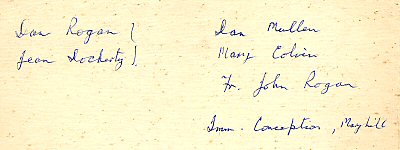 Dan Rogan }
Jean Docherty }
Dan Mullen
Mary Colvin
Fr. John Rogan
Imm. Conception, Maryhill